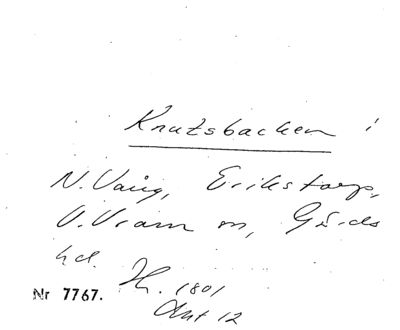 Knutsbacken i
N. Vång, Erikstorp,
V. Vram m, Gärds
hd. Th. 1801
Akt 12
Nr 7767.